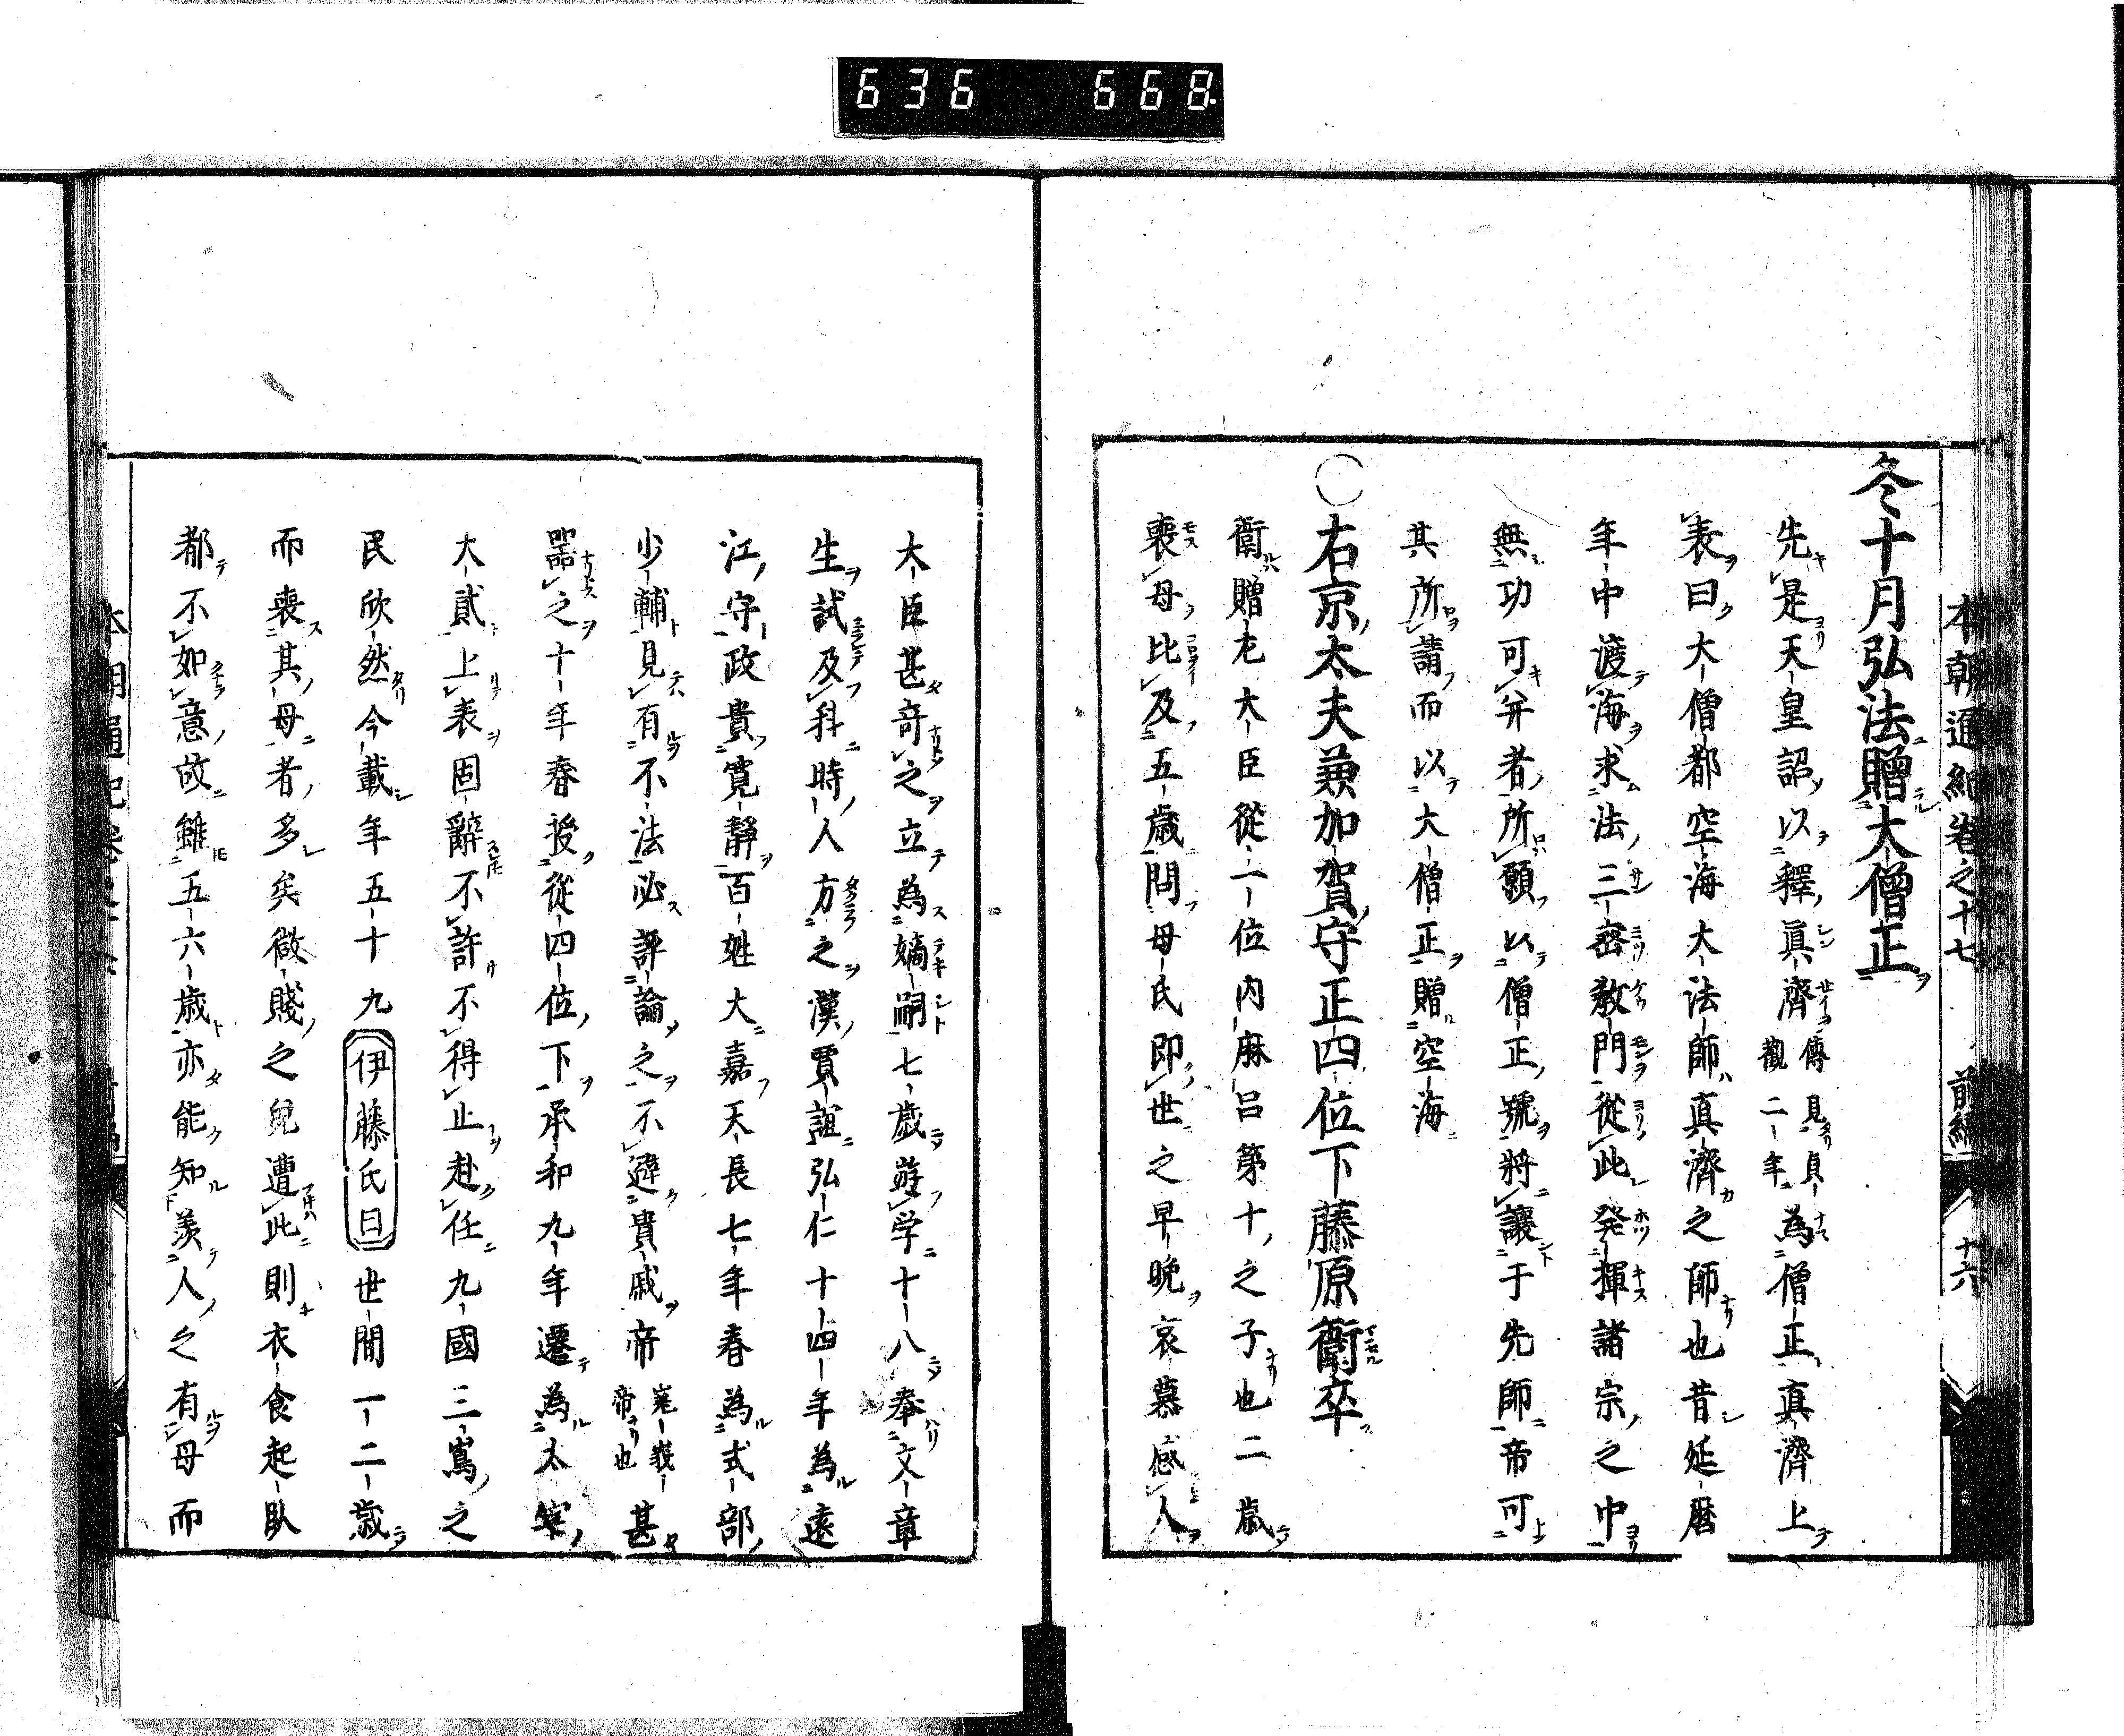 636 668
本朝通紀卷之十七 前編 十六
冬十月弘法贈大僧正
先是天皇詔以釋眞濟傳見貞觀二年為僧正真濟上
表曰大僧都空海大法師真濟之師也昔延暦
年中渡海求法三密教門從此発揮諸宗之中
無功可弁者所願以僧正號將讓于先師帝可
其所請而以大僧正贈空海
○右京太夫兼加賀守正四位下藤原衞卒
衞贈左大臣從二位内麻呂第十之子也二歳
喪母比及五歳問母氏即世之早晩哀慕感人
大臣甚奇之立為嫡嗣七歳遊学十八奉文章
生試及科時人方之漢賈誼弘仁十四年為遠
江守政貴寛靜百姓大嘉天長七年春為式部
少輔見有不法必評論之不避貴戚帝嵯峨帝也甚
器之十年春授從四位下承和九年遷為太宰
大貳上表固辭不許不得止赴任九國三嶌之
民欣然今載年五十九伊藤氏曰世間一二歳
而喪其母者多矣微賤之兒遭此則衣食起臥
都不如意故雖五六歳亦能知羨人之有母而